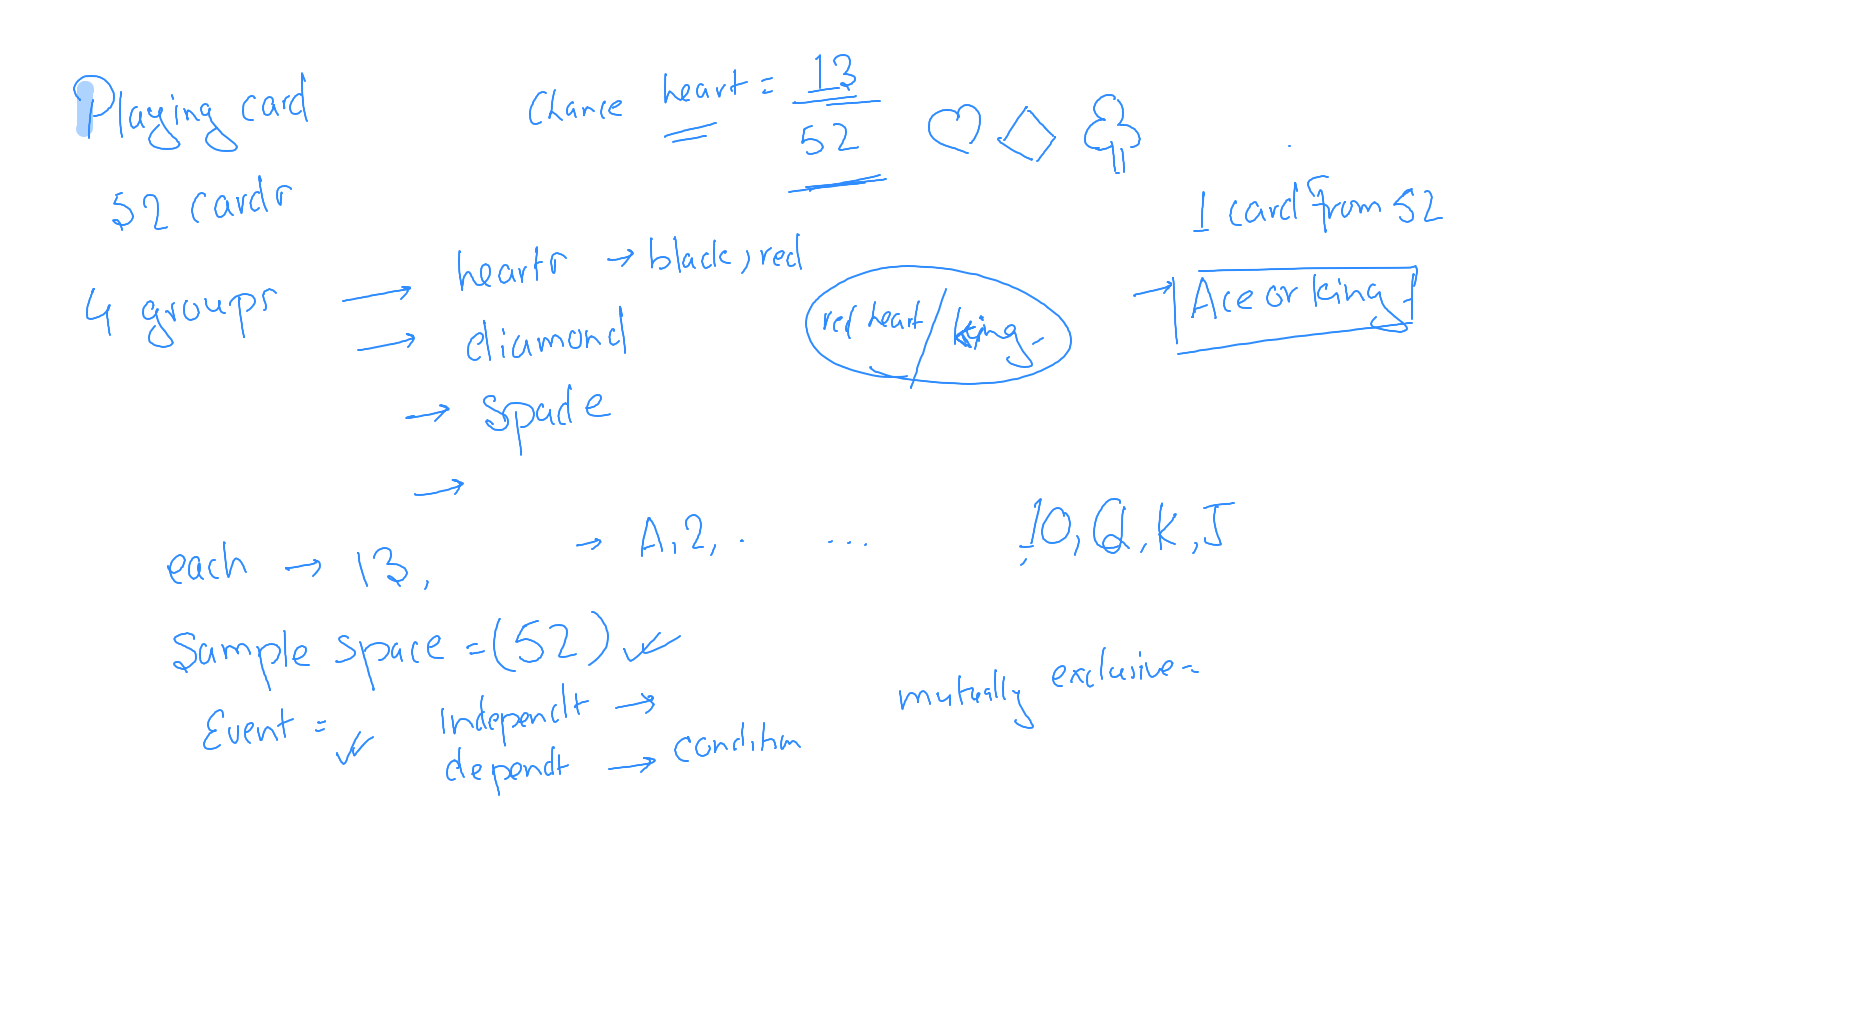 Playing card
52 cards
4 groups
Chance heart = 13/52
→ hearts → black, red
→ diamond
→ spade
→
red heart / king
1 card from 52
→ Ace or king
each → 13,
→ A, 2, . ... 10, Q, K, J
Sample space = (52) ✓
Event =
Independt →
dependt → condition
mutually exclusive =